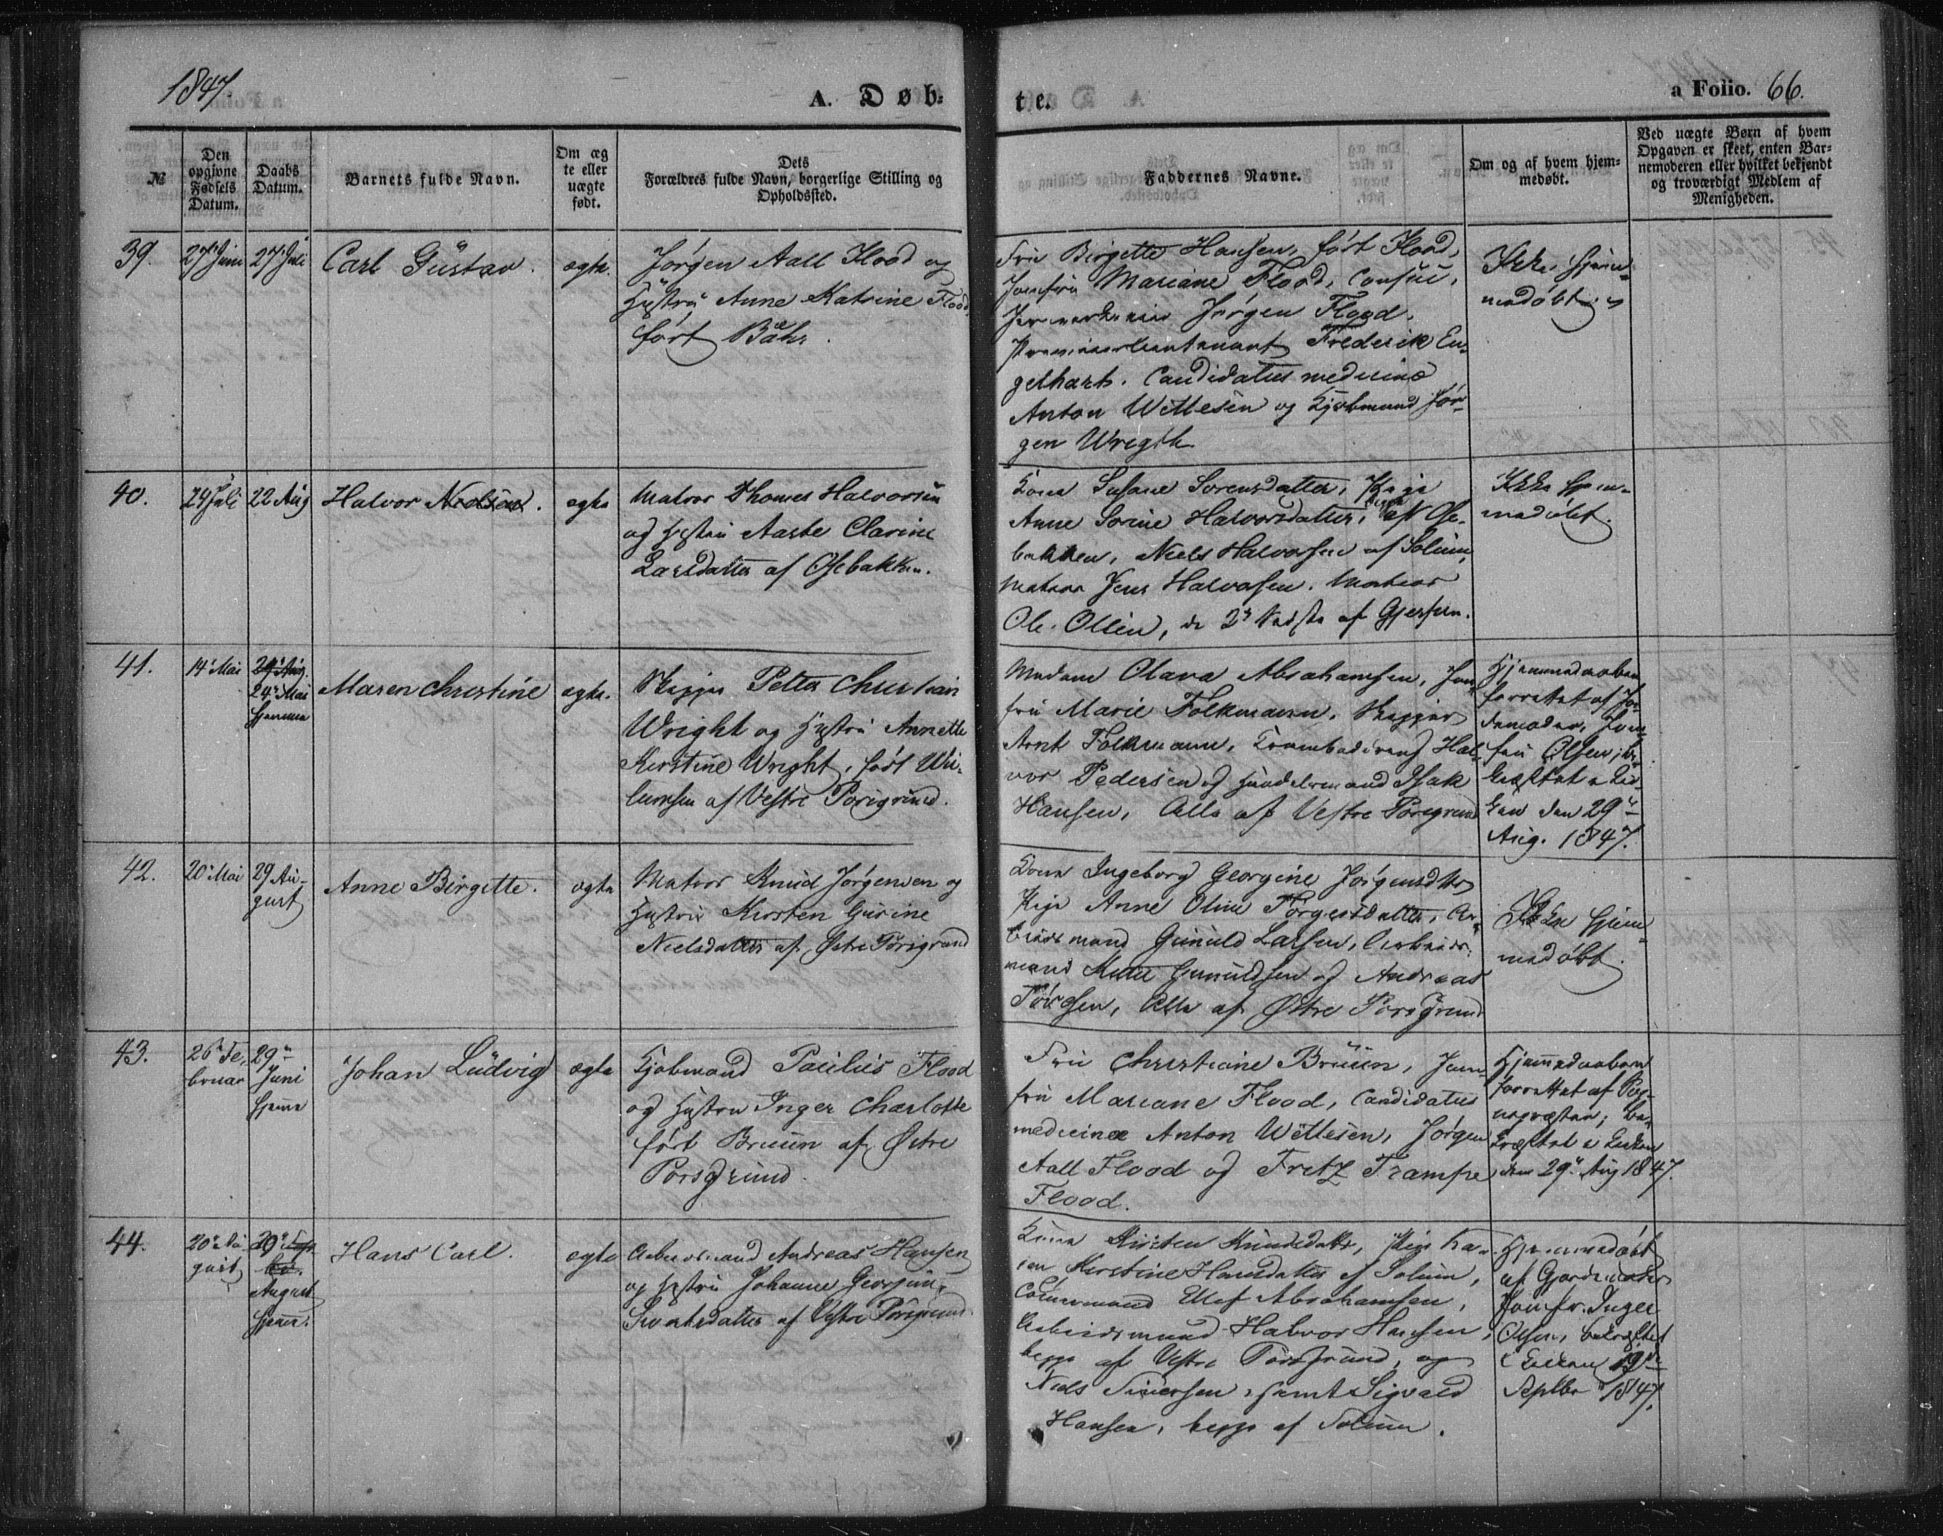 1847.
A. Døb=
te.
a Folio. 66.
№
Den opgivne Fødsels Datum.
Daabs Datum.
Barnets fulde Navn.
Om æg te eller uægte født.
Dets Forældres fulde Navn, borgerlige Stilling og Opholdssted.
Faddernes Navne.
Om og af hvem hjem- medøbt.
Ved uægte Børn af hvem Opgaven er skeet, enten Bar- nemoderen eller hvilket bekjendt og troværdigt Medlem af Menigheden.
39.
27 Juni
27 Juli
Carl Gustav.
ægte.
Jørgen Aall Flood og
Hustru Anne Katrine Flood
født Bæhr.
Fru Birgette Hansen, født Flood,
Jomfru Mariane Flood, Consul,
Jørgen Flood.
Premierleutenant Frederik En-
gelhart. Candidatus medicinæ
Anton Willesen og Kjøbmand Jør-
gen Wright
Ikke hjem-
medøbt.
40.
24 Juli
22 Aug
Halvor Nielsen.
ægte
Matros Thomes Halvorsen
og Hustru Aaste Clarine
Larsdatter af Osebakken.
Kone Susane Sørensdatter, Pige
Anne Sorine Halvorsdatter, af Ose-
bakken, Niels Halvorsen af Solum,
Matros Jens Halvorsen. Matros
Ole Olsen, de 2 Sidste af Gjerpen.
Ikke hjem-
medøbt.
41.
14 Mai
24 Mai
hjemme
Maren Christine
ægte.
Skipper Petter Christian
Wright og Hustru Annette
Kirstine Wright, født Wil-
lumsen af Vestre Porsgrund.
Madam Olava Abrahamsen, Jom-
fru Marie Folkmann, Skipper
Arnt Folkmann, Hal-
vor Pedersen og Handelsmand Isak
Hansen, Alle af Vestre Porsgrund
Hjemmedaaben
forrettet af Jor-
demoder, Jom-
fru Olsen, be-
kræftet i Kir-
ken den 29
Aug. 1847.
42.
20 Mai
29 Au-
gust
Anne Birgitte.
ægte
Matros Knud Jørgensen og
Hustru Kirsten Gurine
Nielsdatter af Østre Porsgrund
Kone Ingeborg Georgine Jørgensdtter
Pige Anne Oline Torgersdatter, Ar-
beidsmand Gunuld Larsen, Arbeids-
mand Gunuldsen og Andreas
Alle af Østre Porsgrund
Ikke hjem-
medøbt.
43.
26 Fe-
bruar
29
Juni
hjemme
Johan Ludvig
ægte
Kjøbmand Paulus Flood
og Hustru Inger Charlotte
født Bruun af Østre
Porsgrund.
Fru Christiane Bruun, Jom-
fru Mariane Flood, Candidatus
medicinæ Anton Willesen, Jørgen
Aall Flood og Fretz Trampe
Flood.
Hjemmedaaben
forrettet af Sog-
nepræsten; be-
kræftet i Kirken
den 29 Aug 1847.
44.
20 Au-
gust
29
August
hjemme.
Hans Carl.
ægte
Arbeidsmand Andreas Hansen
og Hustru Johanne Georgine
af Vestre Porsgrund.
Kone Kirsten Knudsdatter, Pige Ka-
ren Kirstine Hansdatter af Solum,
Ellef Abrahamsen,
Arbeidsmand Halvor Hansen,
begge af Vestre Porsgrund, og
Niels Siversen, samt Sigvald
Hansen, begge af Solum.
Hjemmedøbt
af Gjordemoder
Jomfr. Inger
Olsen, bekræftet
i Kirken 19
Septbr 1847.